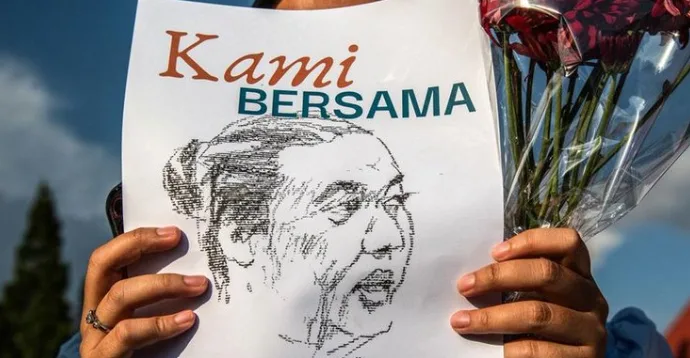 Kami
BERSAMA